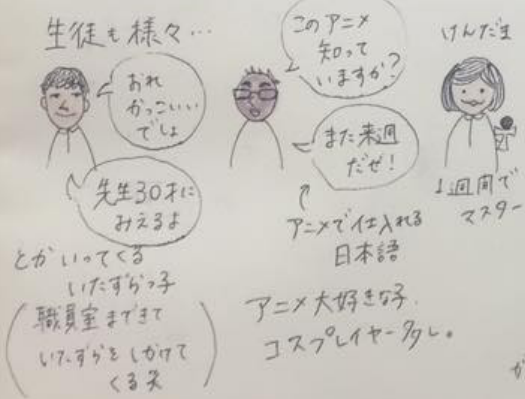 生徒も様々…
おれ
かっこいい
でしょ
先生30才に
みえるよ
とかいってくる
いたずらっ子
(職員室まできて
いたずらをしかけて
くる笑)
このアニメ
知って
いますか?
また来週
だぜ!
↑
アニメで仕入れる
日本語
アニメ大好きな子.
コスプレイヤー多し。
けんだま
1週間で
マスター
が